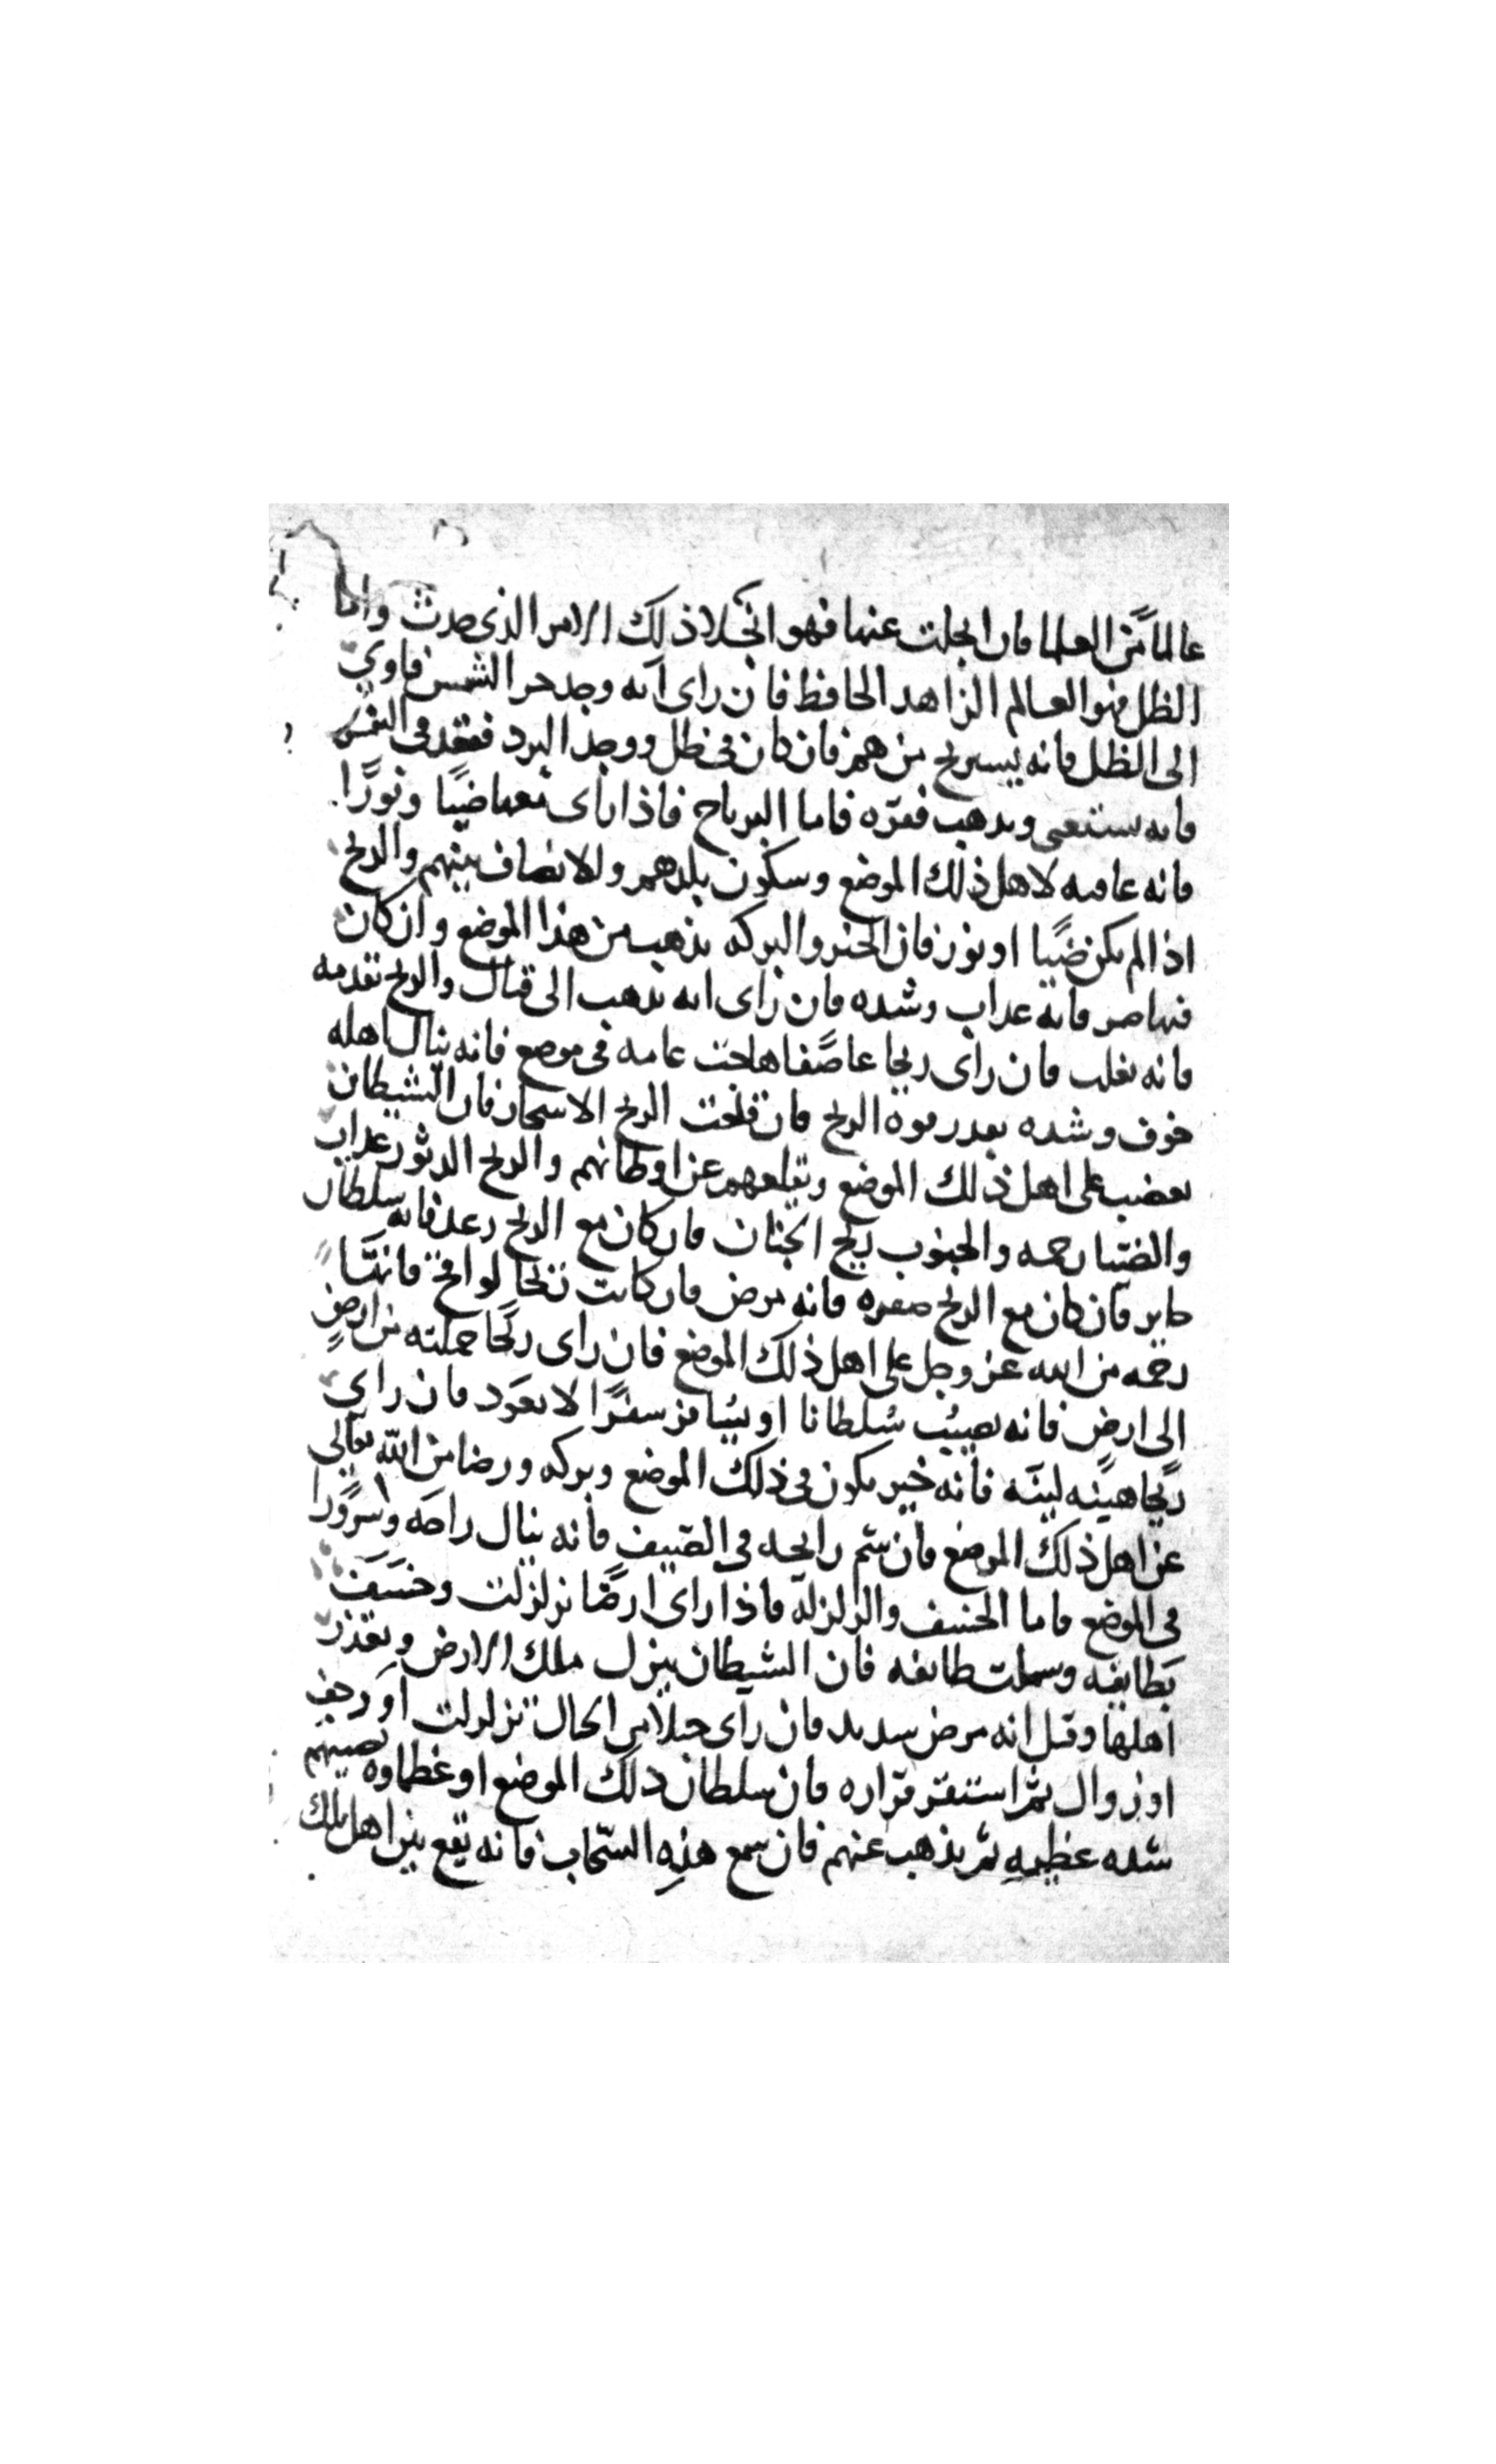 عالما من العلما فان انجلت عنها فهو انجلا ذلك الامر الذى حدث واما
الظل فهو العالم الزاهد الحافظ فان راى انه وجد حر الشمس فاوى
الى الظل فانه يستريح من هم فان كان فى ظل ووجد البرد فقعد فى الشمس
فانه يستغنى ويذهب فقره فاما الرياح فاذا راى معها ضيا ونورا
فانه عافيه لاهل ذلك الموضع وسكون بلدهم والانصاف بينهم والريح
اذا لم يكن ضيا او نور فان الخير والبركه يذهب من هذا الموضع وان كان
فيها صر فانه عداب وشده فان راى انه يذهب الى قتال والريح تقدمه
فانه يغلب فان راى ريحا عاصفا هاجت عامه فى موضع فانه ينال اهله
خوف وشده بقدر قوة الريح فان قلعت الريح الاشجار فان الشيطان
يغضب على اهل ذلك الموضع ويقلعهم عن اوطانهم والريح الدثور عداب
والصبا رحمه والجنوب ريح الجنان فان كان مع الريح رعد فانه سلطان
جاير فان كان مع الريح صفره فانه مرض فان كانت ريحا لواقح فانها
رحمه من الله عز وجل على اهل ذلك الموضع فان راى ريحا حملته من ارض
الى ارض فانه يصيب سلطانا او يسافر سفرا لا يعود فان راى
ريحا هينه لينه فانه خير يكون فى ذلك الموضع وبركه ورضا من الله تعالى
عن اهل ذلك الموضع فان شم رايحه فى الصيف فانه ينال راحه وسرورا
فى الموضع فاما الخسف والزلزله فاذا راى ارضا تزلزلت وخسف
بطايفه وسلمت طايفه فان الشيطان ينزل ملك الارض ويقذر
اهلها وقيل انه مرض شديد فان راى جبلا من الجبال تزلزلت او رجف
او زوال ثم استقر قراره فان سلطان ذلك الموضع او عظماوه تصيبهم
شده عظيمه ثم يذهب عنهم فان سمع هذه السحاب فانه يقع بين اهل تلك